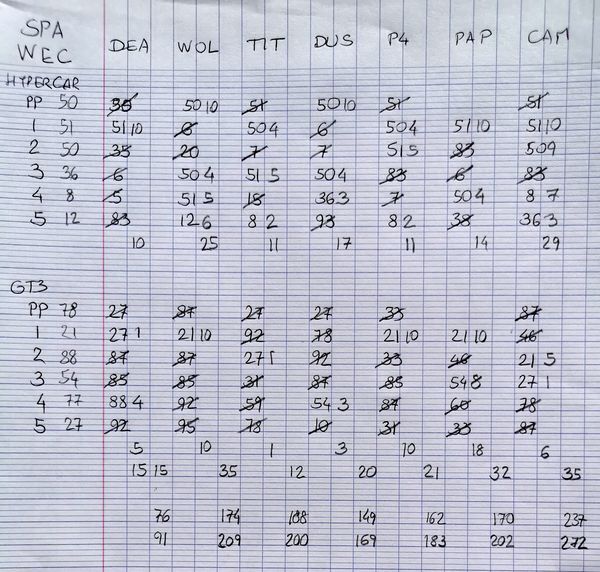 SPA
WEC DEA WOL TIT DUS P4 PAP CAM
HYPERCAR
PP 50 35 50 10 51 50 10 51 51
1 51 51 10 6 50 4 6 50 4 51 10 51 10
2 50 35 20 7 7 51 5 83 50 9
3 36 6 50 4 51 5 50 4 83 6 83
4 8 5 51 5 18 36 3 7 50 4 8 7
5 12 83 12 6 8 2 93 8 2 38 36 3
10 25 11 17 11 14 29
GT3
PP 78 27 87 27 27 33 87
1 21 27 1 21 10 92 78 21 10 21 10 46
2 88 87 87 27 1 92 33 46 21 5
3 54 85 85 31 87 85 54 8 27 1
4 77 88 4 92 59 54 3 87 60 78
5 27 92 95 78 10 31 33 87
5 10 1 3 10 18 6
15 15 35 12 20 21 32 35
76 174 188 149 162 170 237
91 209 200 169 183 202 272